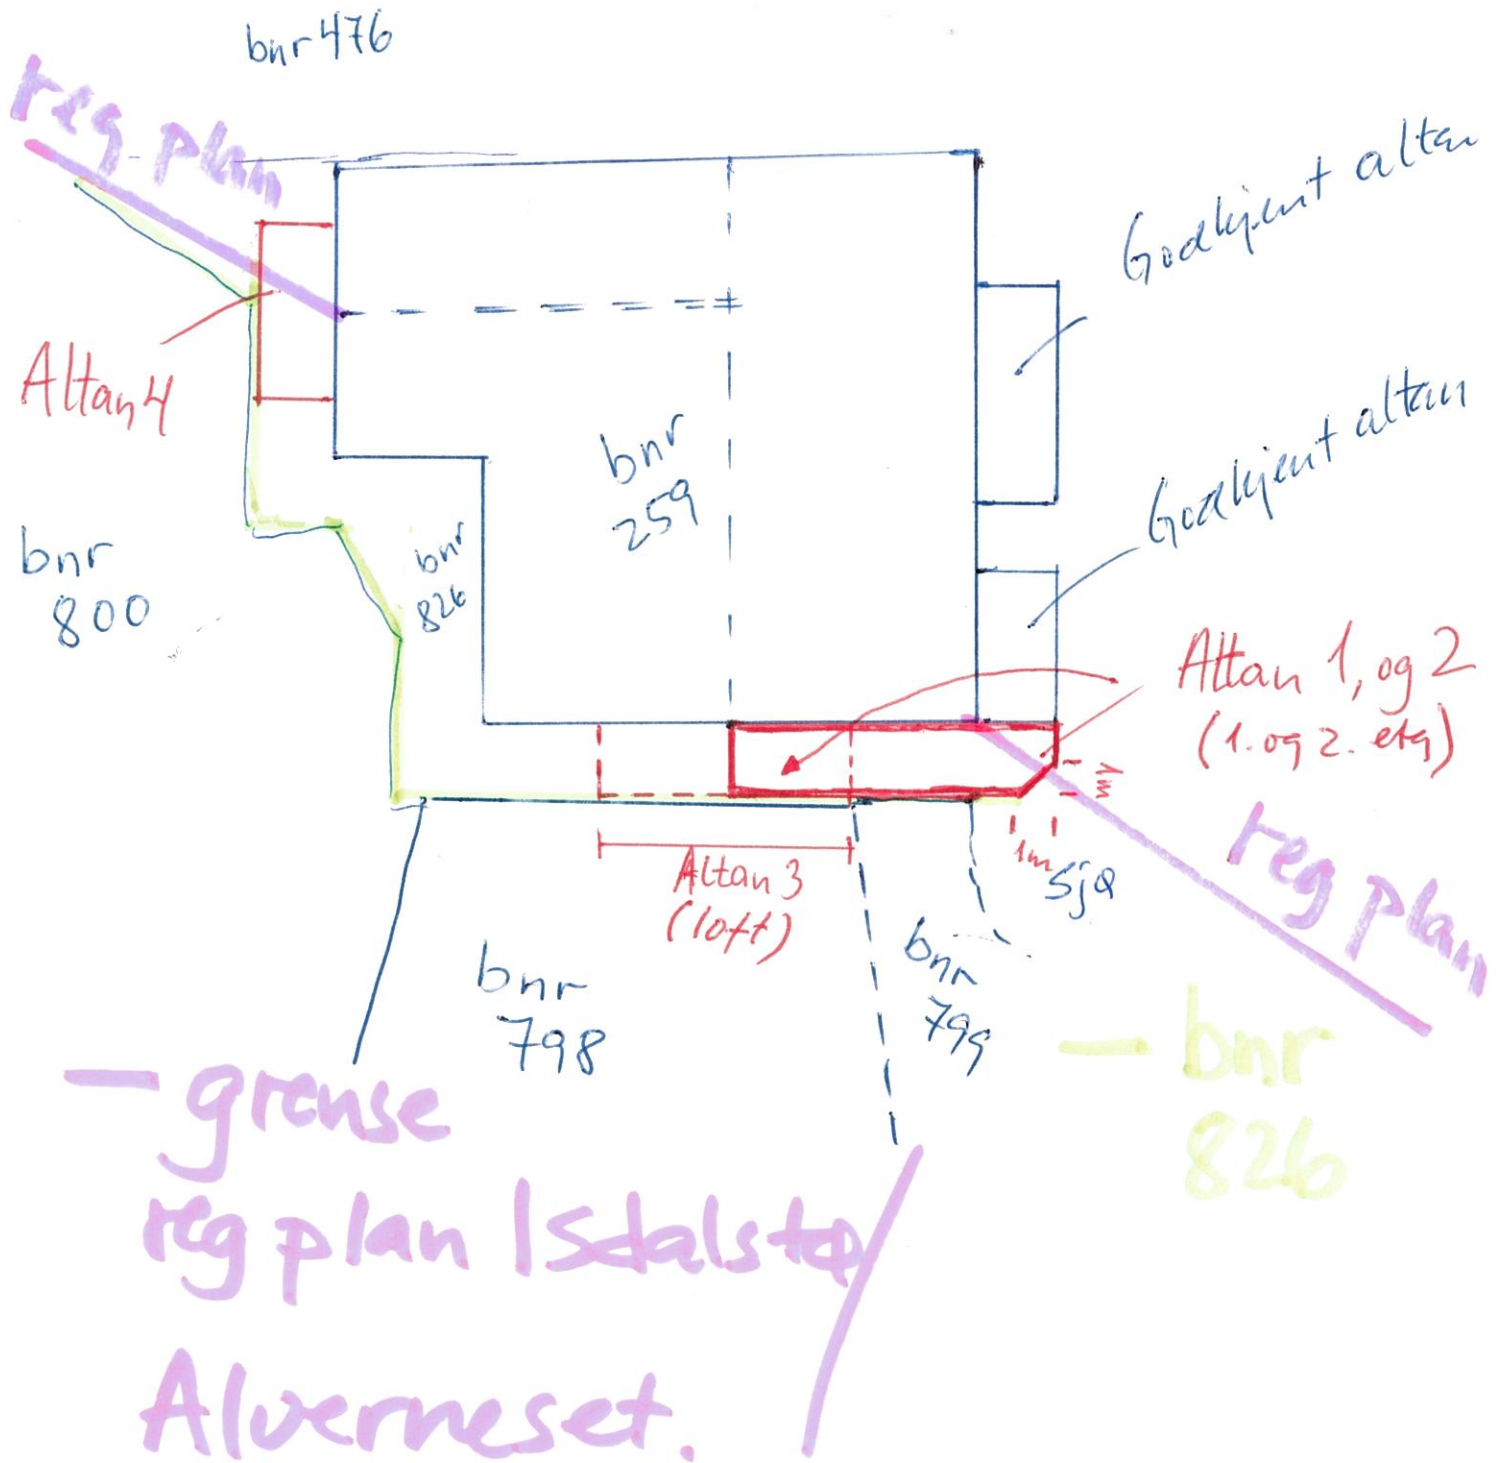 bnr 476
reg. plan
Godkjent altan
Altan 4
Godkjent altan
bnr
259
bnr
800
bnr
826
Altan 1, og 2
(1. og 2. etg)
1m
1m
sjø
Altan 3
(loft)
reg plan
bnr
798
bnr
799
bnr
826
grense
reg plan Isdalstø/
Alverneset.